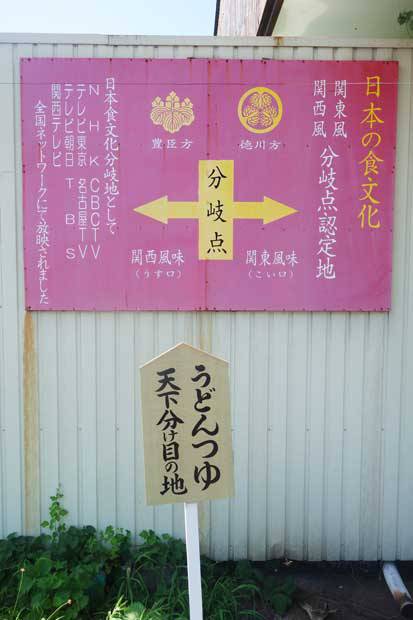 日本の食文化
関東風
関西風
分岐点認定地
徳川方
豊臣方
分岐点
関東風味
(こい口)
関西風味
(うす口)
日本食文化分岐地として
NHK CBCTV
テレビ東京 名古屋TV
テレビ朝日 TBS
関西テレビ
全国ネットワークにて放映されました
うどんつゆ
天下分け目の地